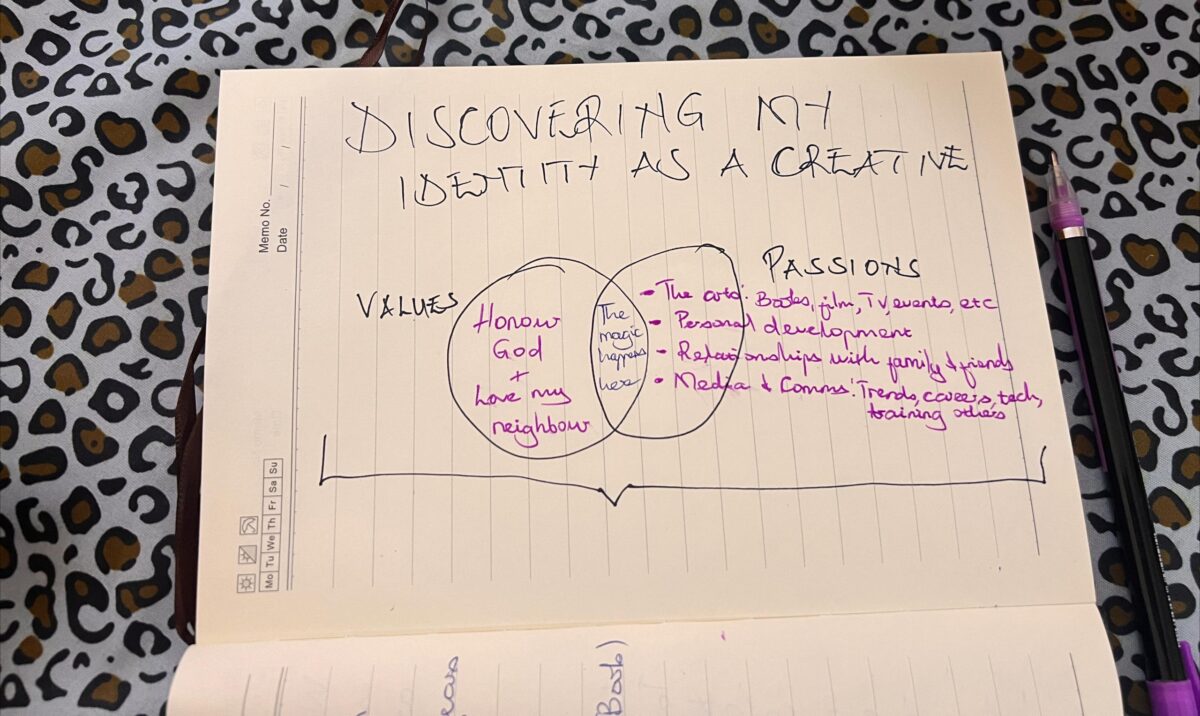 DISCOVERING MY
IDENTITY AS A CREATIVE
Memo No.
Date / /
VALUES
Honour
God
+
Love my
neighbour
The
magic
happens
here
PASSIONS
- The arts: Books, film, TV, events, etc
- Personal development
- Relationships with family & friends
- Media & Comms: Trends, careers, tech,
training others
Mo Tu We Th Fr Sa Su